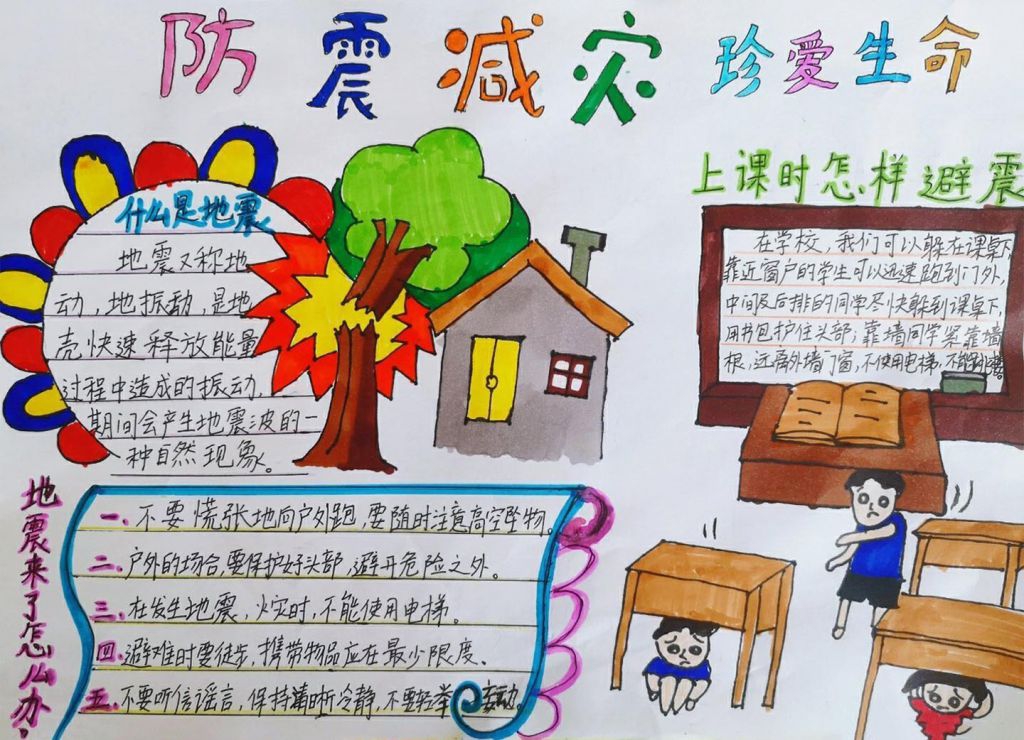 防震减灾 珍爱生命
什么是地震
地震又称地
动,地振动,是地
壳快速释放能量
过程中造成的振动,
期间会产生地震波的一
种自然现象。
上课时怎样避震
在学校,我们可以躲在课桌下,
靠近窗户的学生可以迅速跑到门外,
中间及后排的同学尽快躲到课桌下,
用书包护住头部;靠墙同学紧靠墙
根,远离外墙门窗,不使用电梯,不能
地震来了怎么办.
一.不要慌张地向户外跑,要随时注意高空坠物。
二.户外的场合,要保护好头部,避开危险之外。
三.在发生地震,火灾时,不能使用电梯。
四.避难时要徒步,携带物品应在最少限度。
五.不要听信谣言,保持清晰冷静,不要轻举妄动。